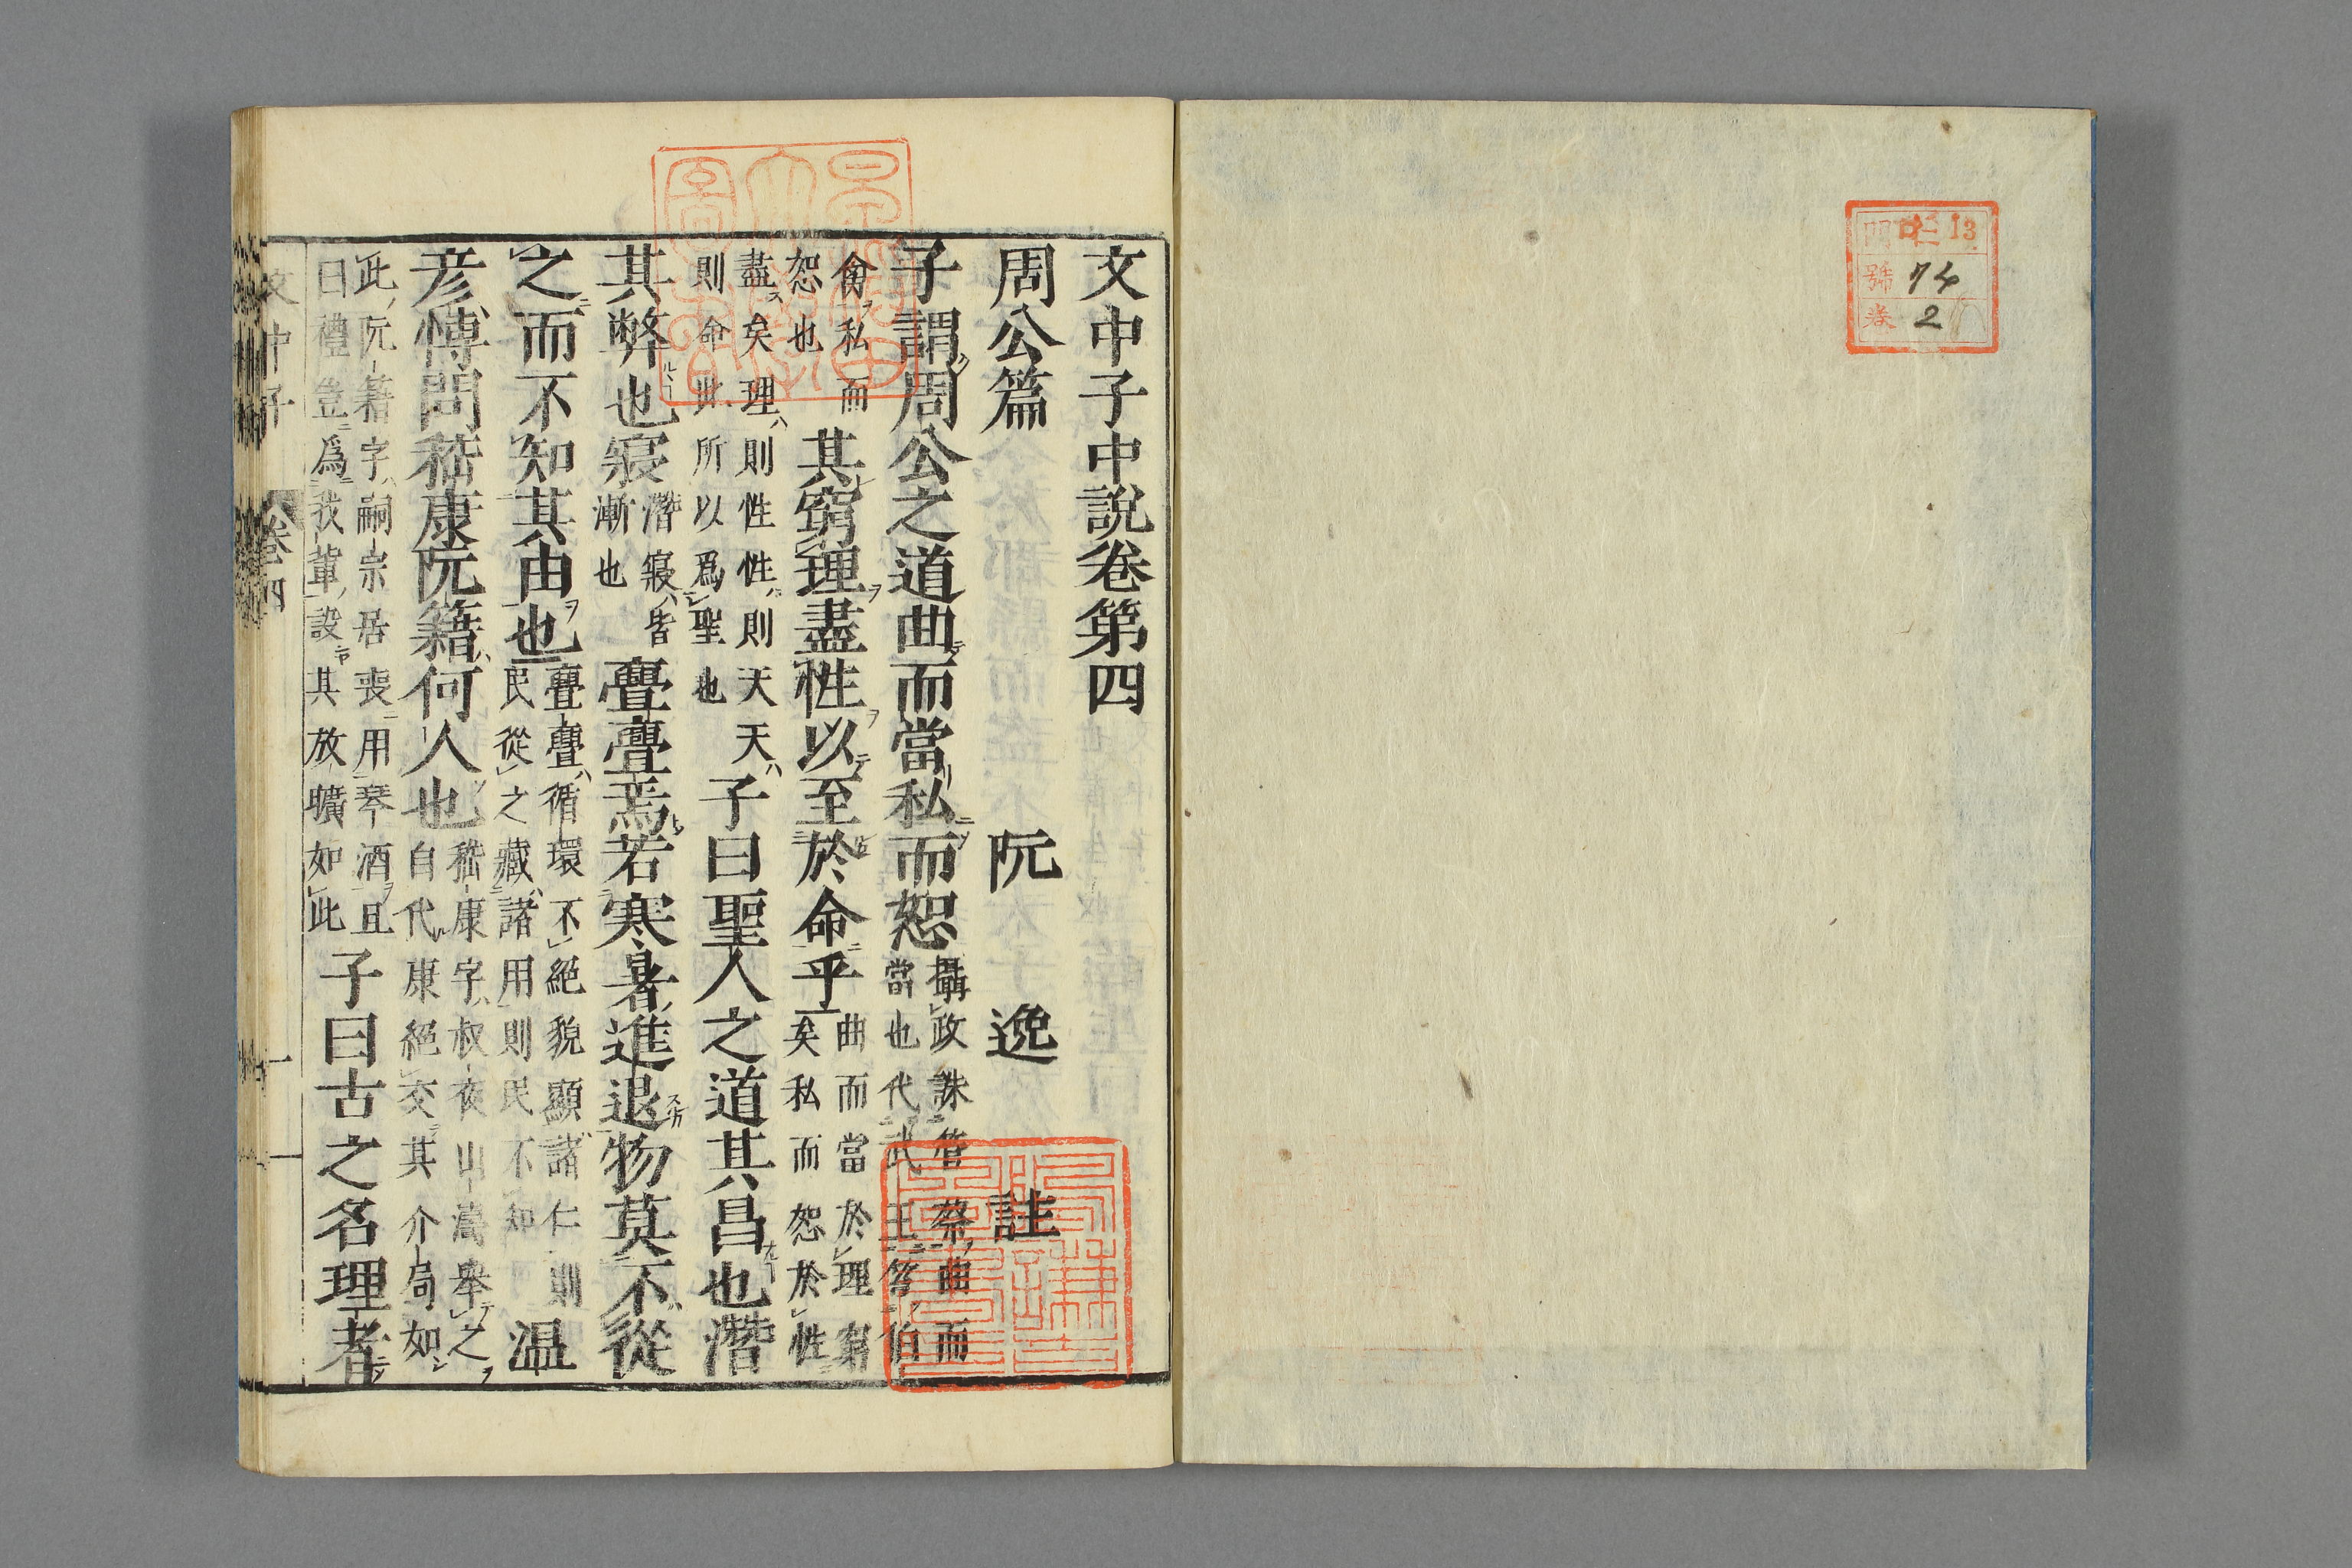 文中子中說卷第四
周公篇 阮 逸 註
子謂周公之道曲而當私而恕
攝政誅管蔡曲而
當也代武王答伯
禽私而
恕也
其窮理盡性以至於命乎
曲而當於理窮
矣私而恕於性
盡矣理則性性則天天
則命此所以爲聖也
子曰聖人之道其昌也潛
其弊也寢
潛寢皆
漸也
亹亹焉若寒暑進退物莫不從
之而不知其由也
亹亹循環不絕貌顯諸仁則
民從之藏諸用則民不知
温
彦博問嵇康阮籍何人也
嵇康字叔夜山濤舉之
自代康絕交其介局如
此阮籍字嗣宗居喪用琴酒且
曰禮豈爲我軰設其放曠如此
子曰古之名理者
文中子
卷四
一
門 13
號 74
卷 2